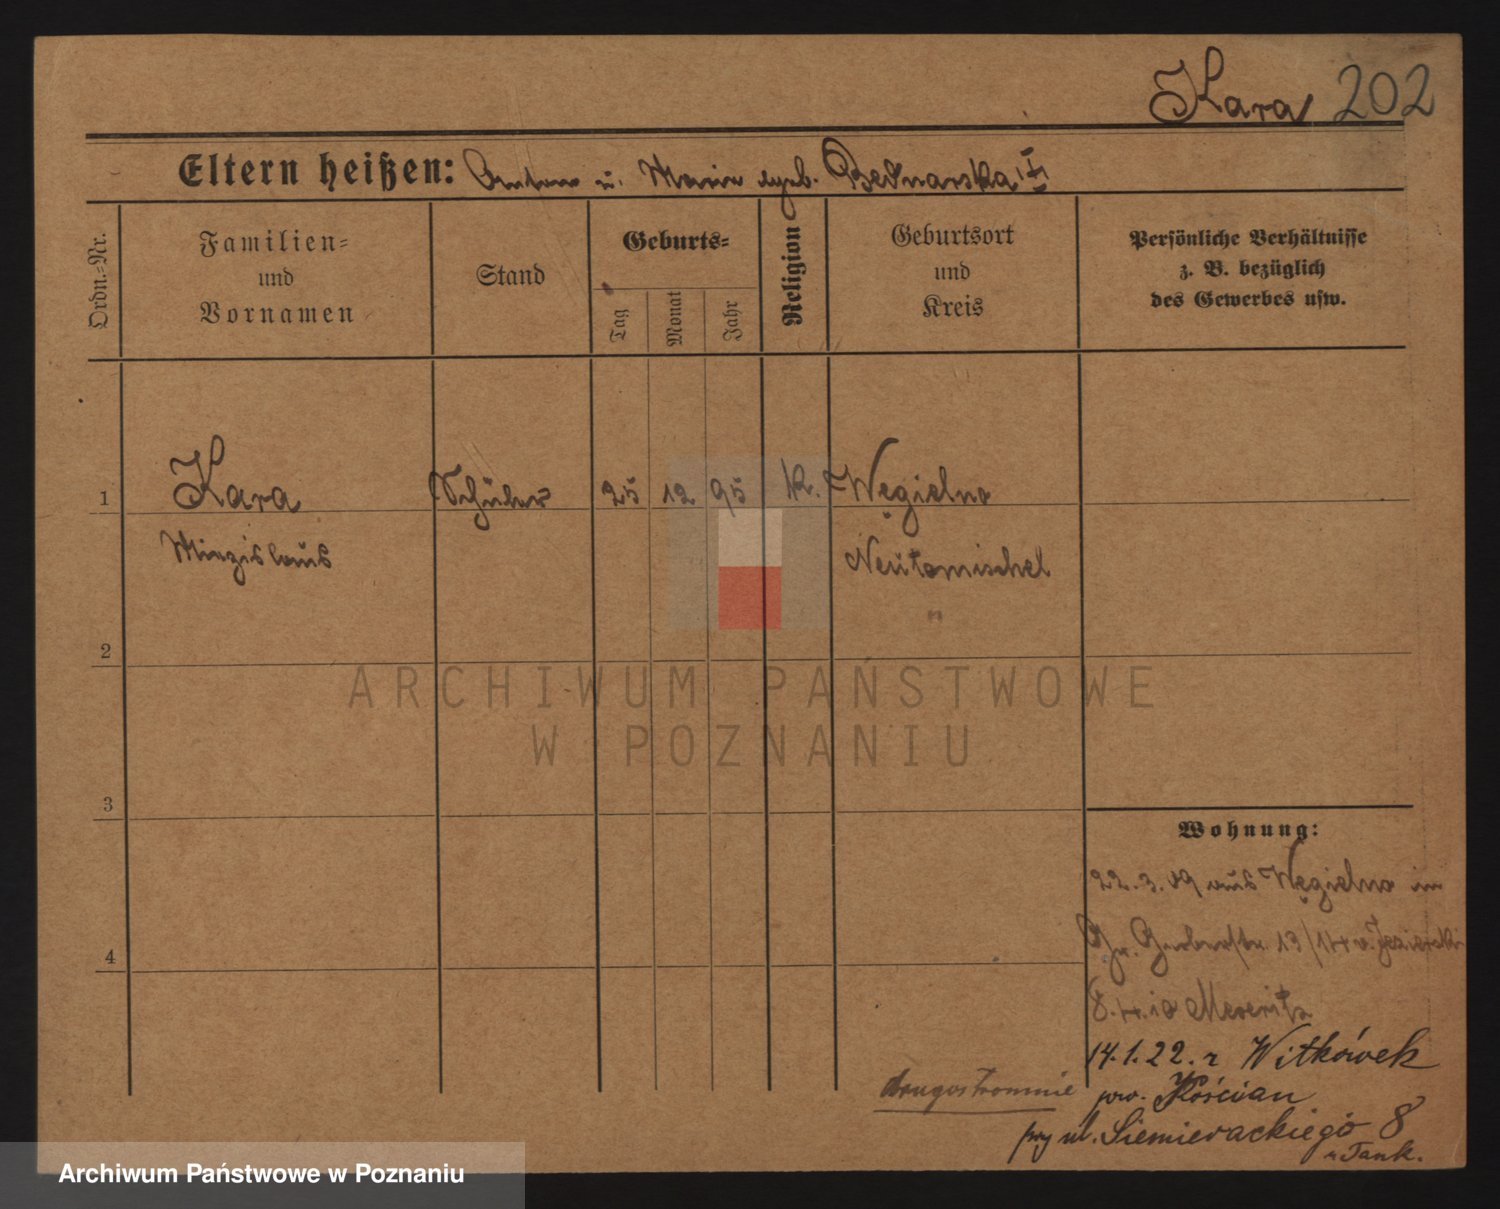 Kara 202
Eltern heißen: Anton u. Marie geb. Bednarska
Ordn.-Nr.
Familien-
und
Vornamen
Stand
Geburts-
Tag
Monat
Jahr
Religion
Geburtsort
und
Kreis
Persönliche Verhältnisse
z. B. bezüglich
des Gewerbes usw.
1 Kara Schüler 25 12 95 k. Węgielno
Miezislaus Neutomischel
2
ARCHIWUM PAŃSTWOWE
W POZNANIU
3
Wohnung:
22.3.09 aus Węgielno in
Gr. Gerberstr. 13/14 v. Jezierski
4
8.4.10 Meseritz
14.1.22. z Witkówek
drugostronnie pow. Kościan
przy ul. Siemieradzkiego 8
Archiwum Państwowe w Poznaniu